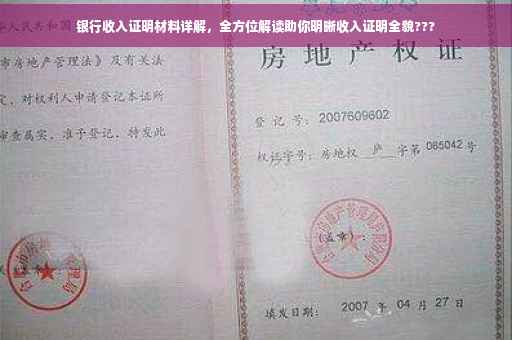 银行收入证明材料详解，全方位解读助你明晰收入证明全貌???
华人民共和国
市房地产管理法》及有关法
定，对权利人申请登记本证所
审查属实，准予登记，特发此
房地产权证
登记号：2007609602
权证字号：房地权 庐 字第 065042 号
(盖章)：
填发日期：2007 年 04 月 27 日